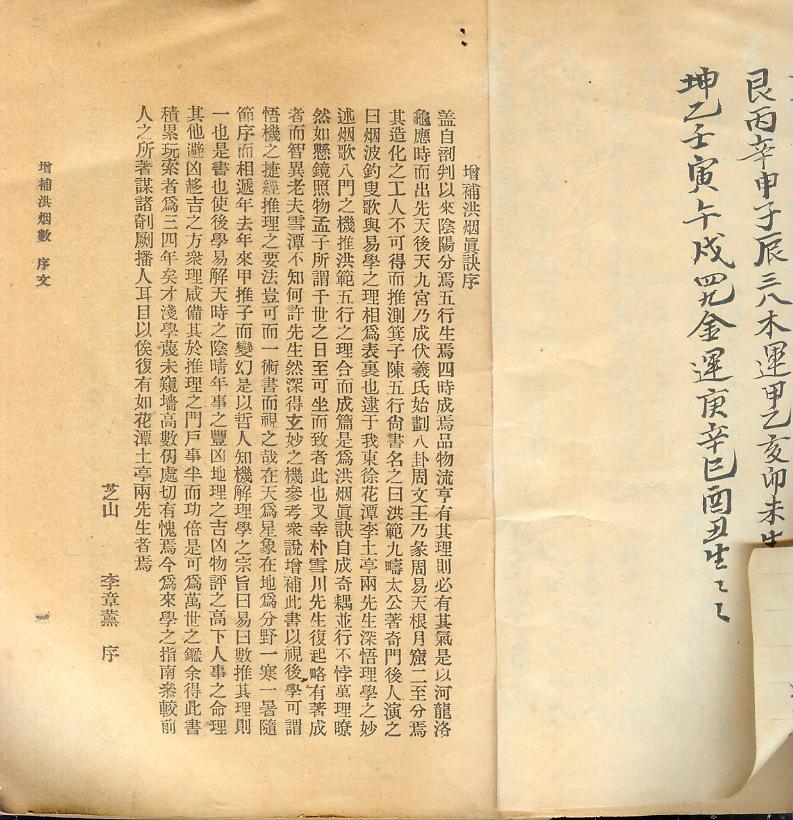 艮丙辛申子辰三八木運甲乙亥卯未生
坤乙壬寅午戌四九金運庚辛巳酉丑生〻〻
增補洪烟眞訣序
盖自剖判以來陰陽分焉五行生焉四時成焉品物流亨有其理則必有其氣是以河龍洛
龜應時而出先天後天九宮乃成伏羲氏始劃八卦周文王乃彖周易天根月窟二至分焉
其造化之工人不可得而推測箕子陳五行尙書名之曰洪範九疇太公著奇門後人演之
曰烟波釣叟歌與易學之理相爲表裏也逮于我東徐花潭李土亭兩先生深悟理學之妙
述烟歌八門之機推洪範五行之理合而成篇是爲洪烟眞訣自成奇耦並行不悖萬理瞭
然如懸鏡照物孟子所謂千世之日至可坐而致者此也又幸朴雪川先生復起略有著成
者而智異老夫雪潭不知何許先生然深得玄妙之機參考衆說增補此書以視後學可謂
悟機之捷經推理之要法豈可而一術書而視之哉在天爲星象在地爲分野一寒一暑隨
節序而相遞年去年來甲推子而變幻是以哲人知機解理學之宗旨曰易曰數推其理則
一也是書也使後學易解天時之陰晴年事之豐凶地理之吉凶物評之高下人事之命理
其他避凶趍吉之方衆理咸備其於推理之門戶事半而功倍是可爲萬世之鑑余得此書
積累玩索者爲三四年矣才淺學蔑未窺墻高數仞處切有愧焉今爲來學之指南叅較前
人之所著謀諸剞劂播人耳目以俟復有如花潭土亭兩先生者焉
芝山 李章薰 序
增補洪烟數 序文